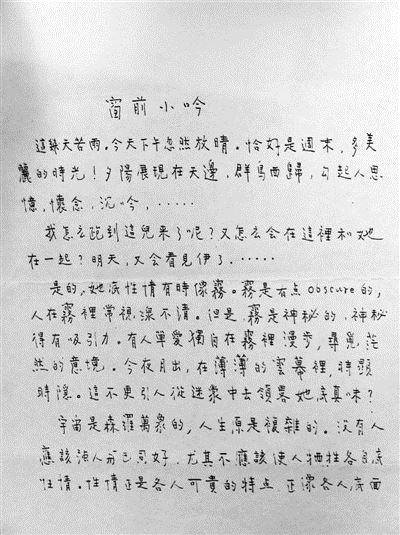 窗前小吟
這幾天苦雨。今天下午忽然放晴。恰好是週末，多美
麗的時光！夕陽展現在天邊，群鳥西歸，勾起人思
憶，懷念，沉吟，......
我怎么跑到這兒来了呢？又怎么会在這裡和她
在一起？明天，又会看見伊了......
是的，她底性情有時像霧。霧是有点obscure的，
人在霧裡常視線不清。但是，霧是神秘的，神秘
得有吸引力。有人單愛獨自在霧裡漫步，尋覓茫
然的意境。今夜月出，在薄薄的雲幕裡，時顯
時隱。這不更引人從迷濛中去領略她底真味？
宇宙是森羅萬象的，人生原是複雜的。没有人
應該強人为己同好，尤其不應該使人犧牲各自底
性情。性情正是各人可貴的特点，正像各人底面